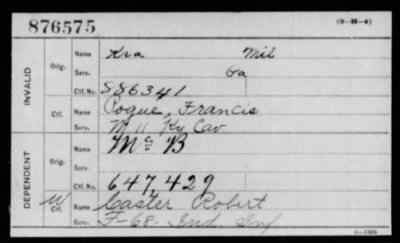 876575 (3-H-4)
INVALID
Orig.
Name Kra Mil
Serv. Pa
Ctf. No. 556341
Ctf.
Name Pogue, Francis
Serv. M 11 Ky Cav
DEPENDENT
Orig.
Name McB
Serv.
Ctf. No. 647,429
W Ctf.
Name Caster Robert
Serv. F-68- Ind. Inf